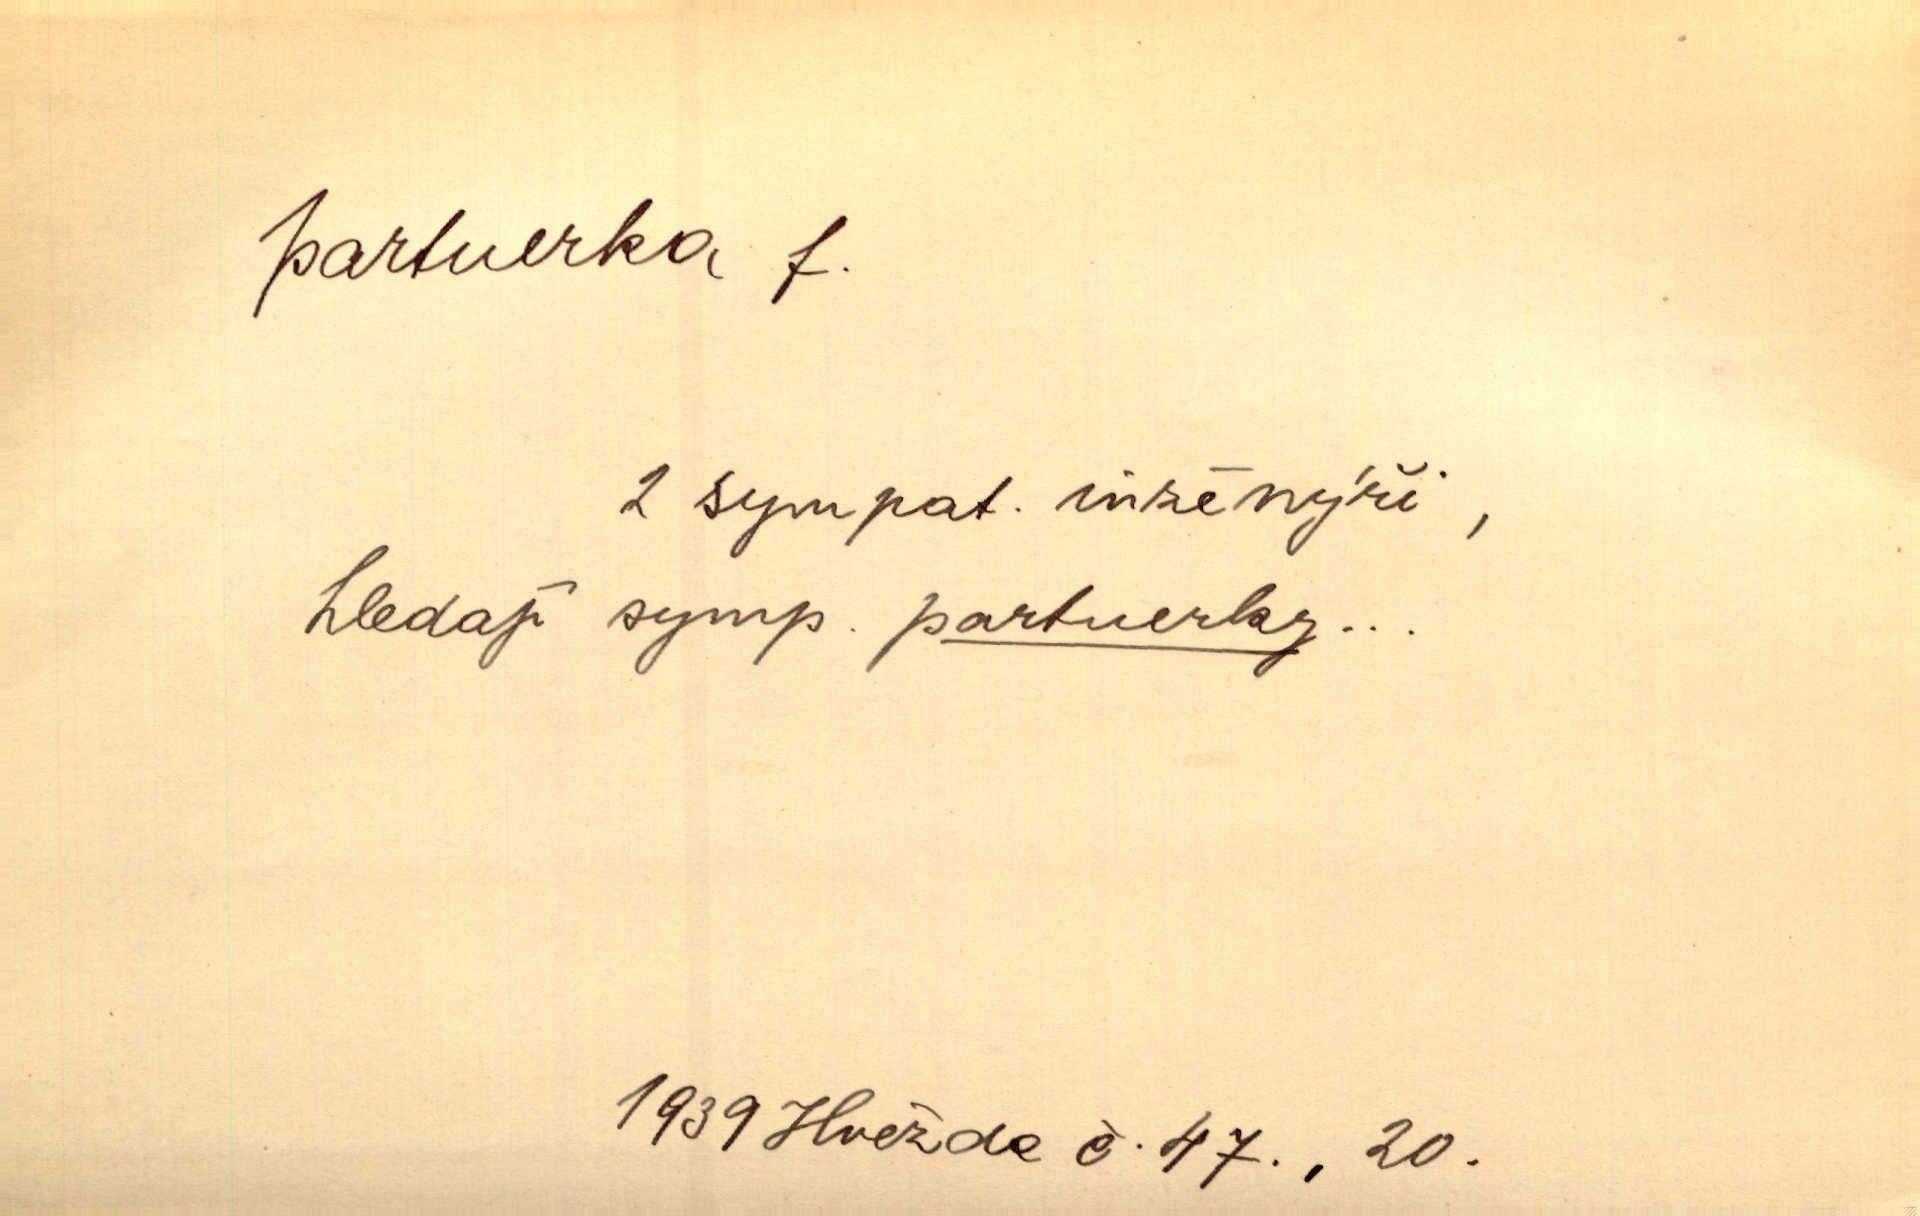 partnerka f.
2 sympat. inženýři,
hledají symp. partnerky...
1939 Hvězda č. 47., 20.